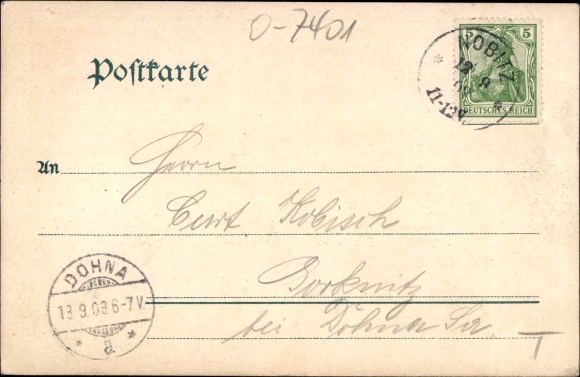 O-7401
Postkarte
5
NOBITZ
12 9
11-12V.
DEUTSCHES REICH
An
Herrn
Curt Kobisch
bei Dohna Sa.
DOHNA
13.9.03 6-7V.
a